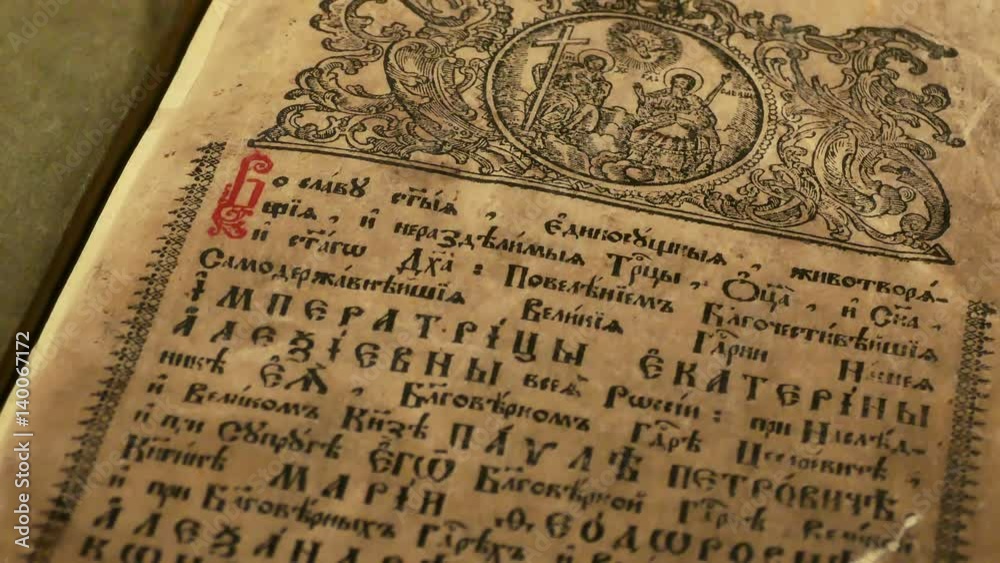 Во славу ст҃ыѧ, єдиносущныѧ, животворѧ-
щиѧ, и нераздѣлимыѧ Трⷪ҇цы, Ѻц҃а, и Сн҃а,
и ст҃агѡ Дх҃а: Повелѣнїемъ Благочестивѣйшїѧ
Самодержавнѣйшїѧ Великїѧ Гдⷭ҇рни Нашеѧ
ІМПЕРАТРІЦЫ ЄКАТЕРІНЫ
АЛЕѮІЕВНЫ всеѧ Рѡссіи: при Наслѣд-
никѣ ЄѦ̀, Бл҃говѣрномъ Гдⷭ҇рѣ Цесаревичѣ,
и Великомъ Кн҃зѣ ПАѴЛѢ ПЕТРОВИЧѢ,
и при Супругѣ ЄГѠ̀ Бл҃говѣрной Гдⷭ҇рнѣ Великой
Кнѧгинѣ МАРІИ ѲЕОДѠРОВНѢ
и при Бл҃говѣрныхъ Гдⷭ҇рехъ
АЛЕѮАНД
Adobe Stock | #140067172
Adobe Stock